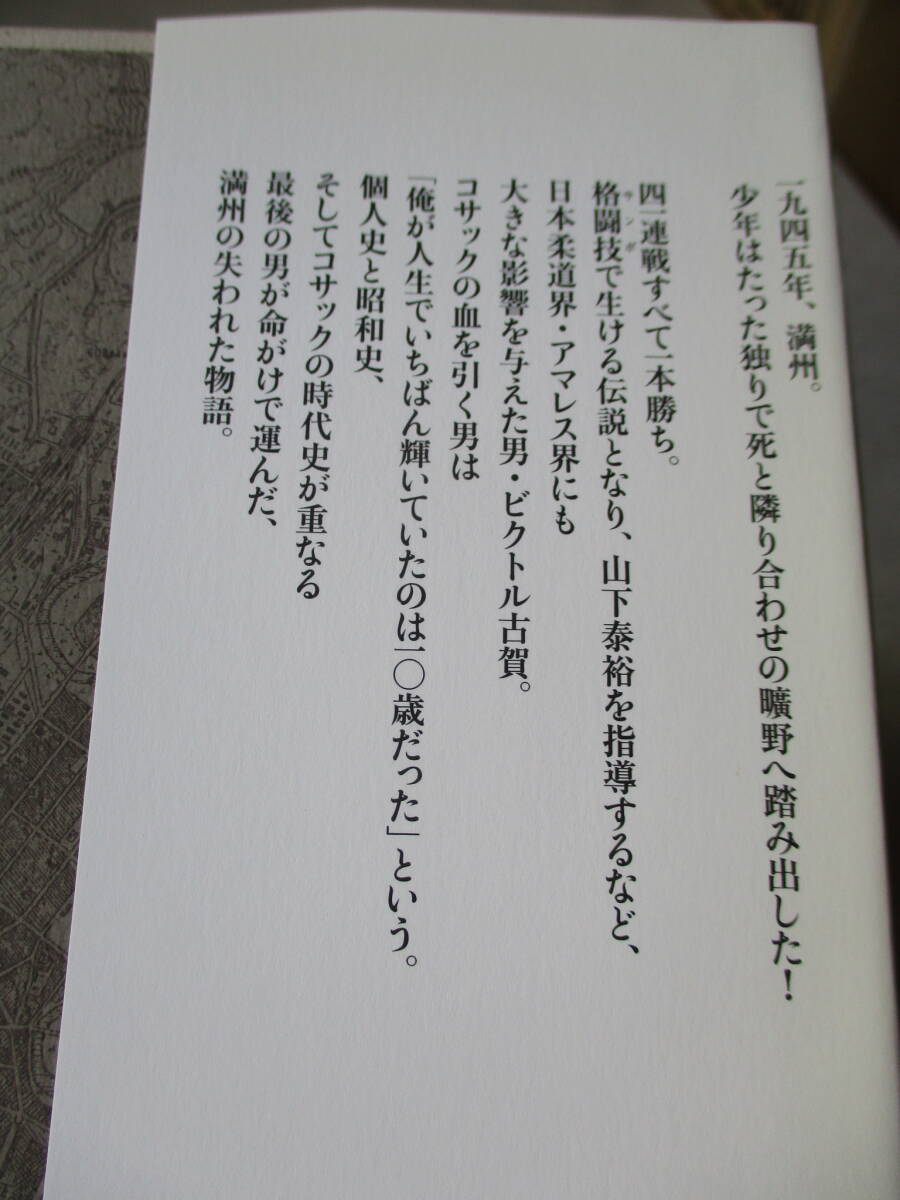 一九四五年、満州。
少年はたった独りで死と隣り合わせの曠野へ踏み出した！
四一連戦すべて一本勝ち。
サンボ
格闘技で生ける伝説となり、山下泰裕を指導するなど、
日本柔道界・アマレス界にも
大きな影響を与えた男・ビクトル古賀。
コサックの血を引く男は
「俺が人生でいちばん輝いていたのは一〇歳だった」という。
個人史と昭和史、
そしてコサックの時代史が重なる
最後の男が命がけで運んだ、
満州の失われた物語。